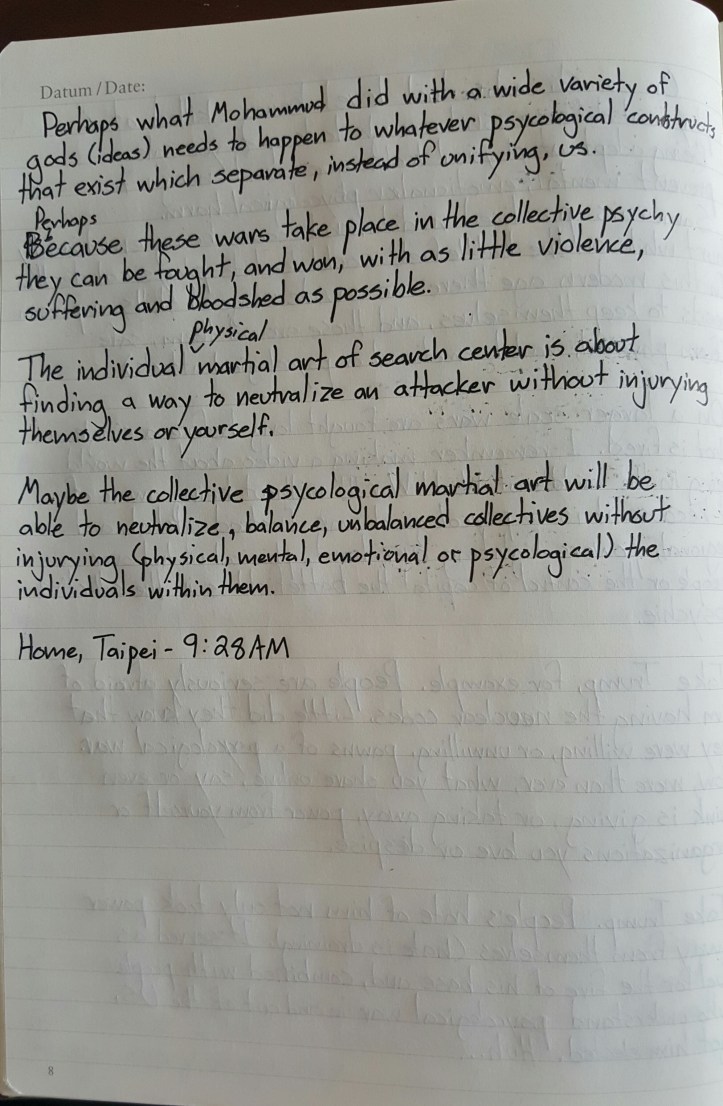 Datum / Date:
Perhaps what Mohammud did with a wide variety of
gods (ideas) needs to happen to whatever psycological constructs
that exist which separate, instead of unifying, us.
Perhaps
Because these wars take place in the collective psychy
they can be fought, and won, with as little violence,
suffering and bloodshed as possible.
physical
The individual martial art of search center is about
finding a way to neutralize an attacker without injurying
themselves or yourself.
Maybe the collective psycological martial art will be
able to neutralize, balance, unbalanced collectives without
injurying (physical, mental, emotional or psycological) the
individuals within them.
Home, Taipei - 9:28AM
8